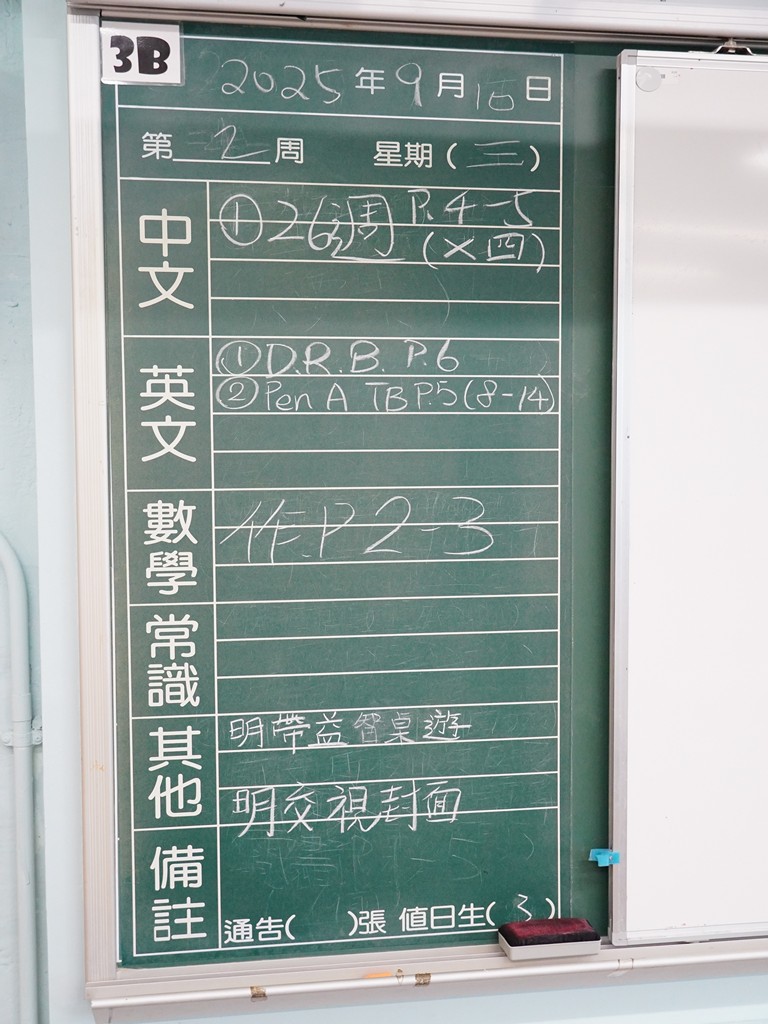 3B
2025年9月10日
第2周 星期(三)
中文
① 26週 P.4-5
(×四)
英文
① D.R.B. P.6
② Pen A TB P.5(8-14)
數學
作.P 2-3
常識
其他
明帶益智桌遊
明交視封面
備註
通告( )張 值日生(3)